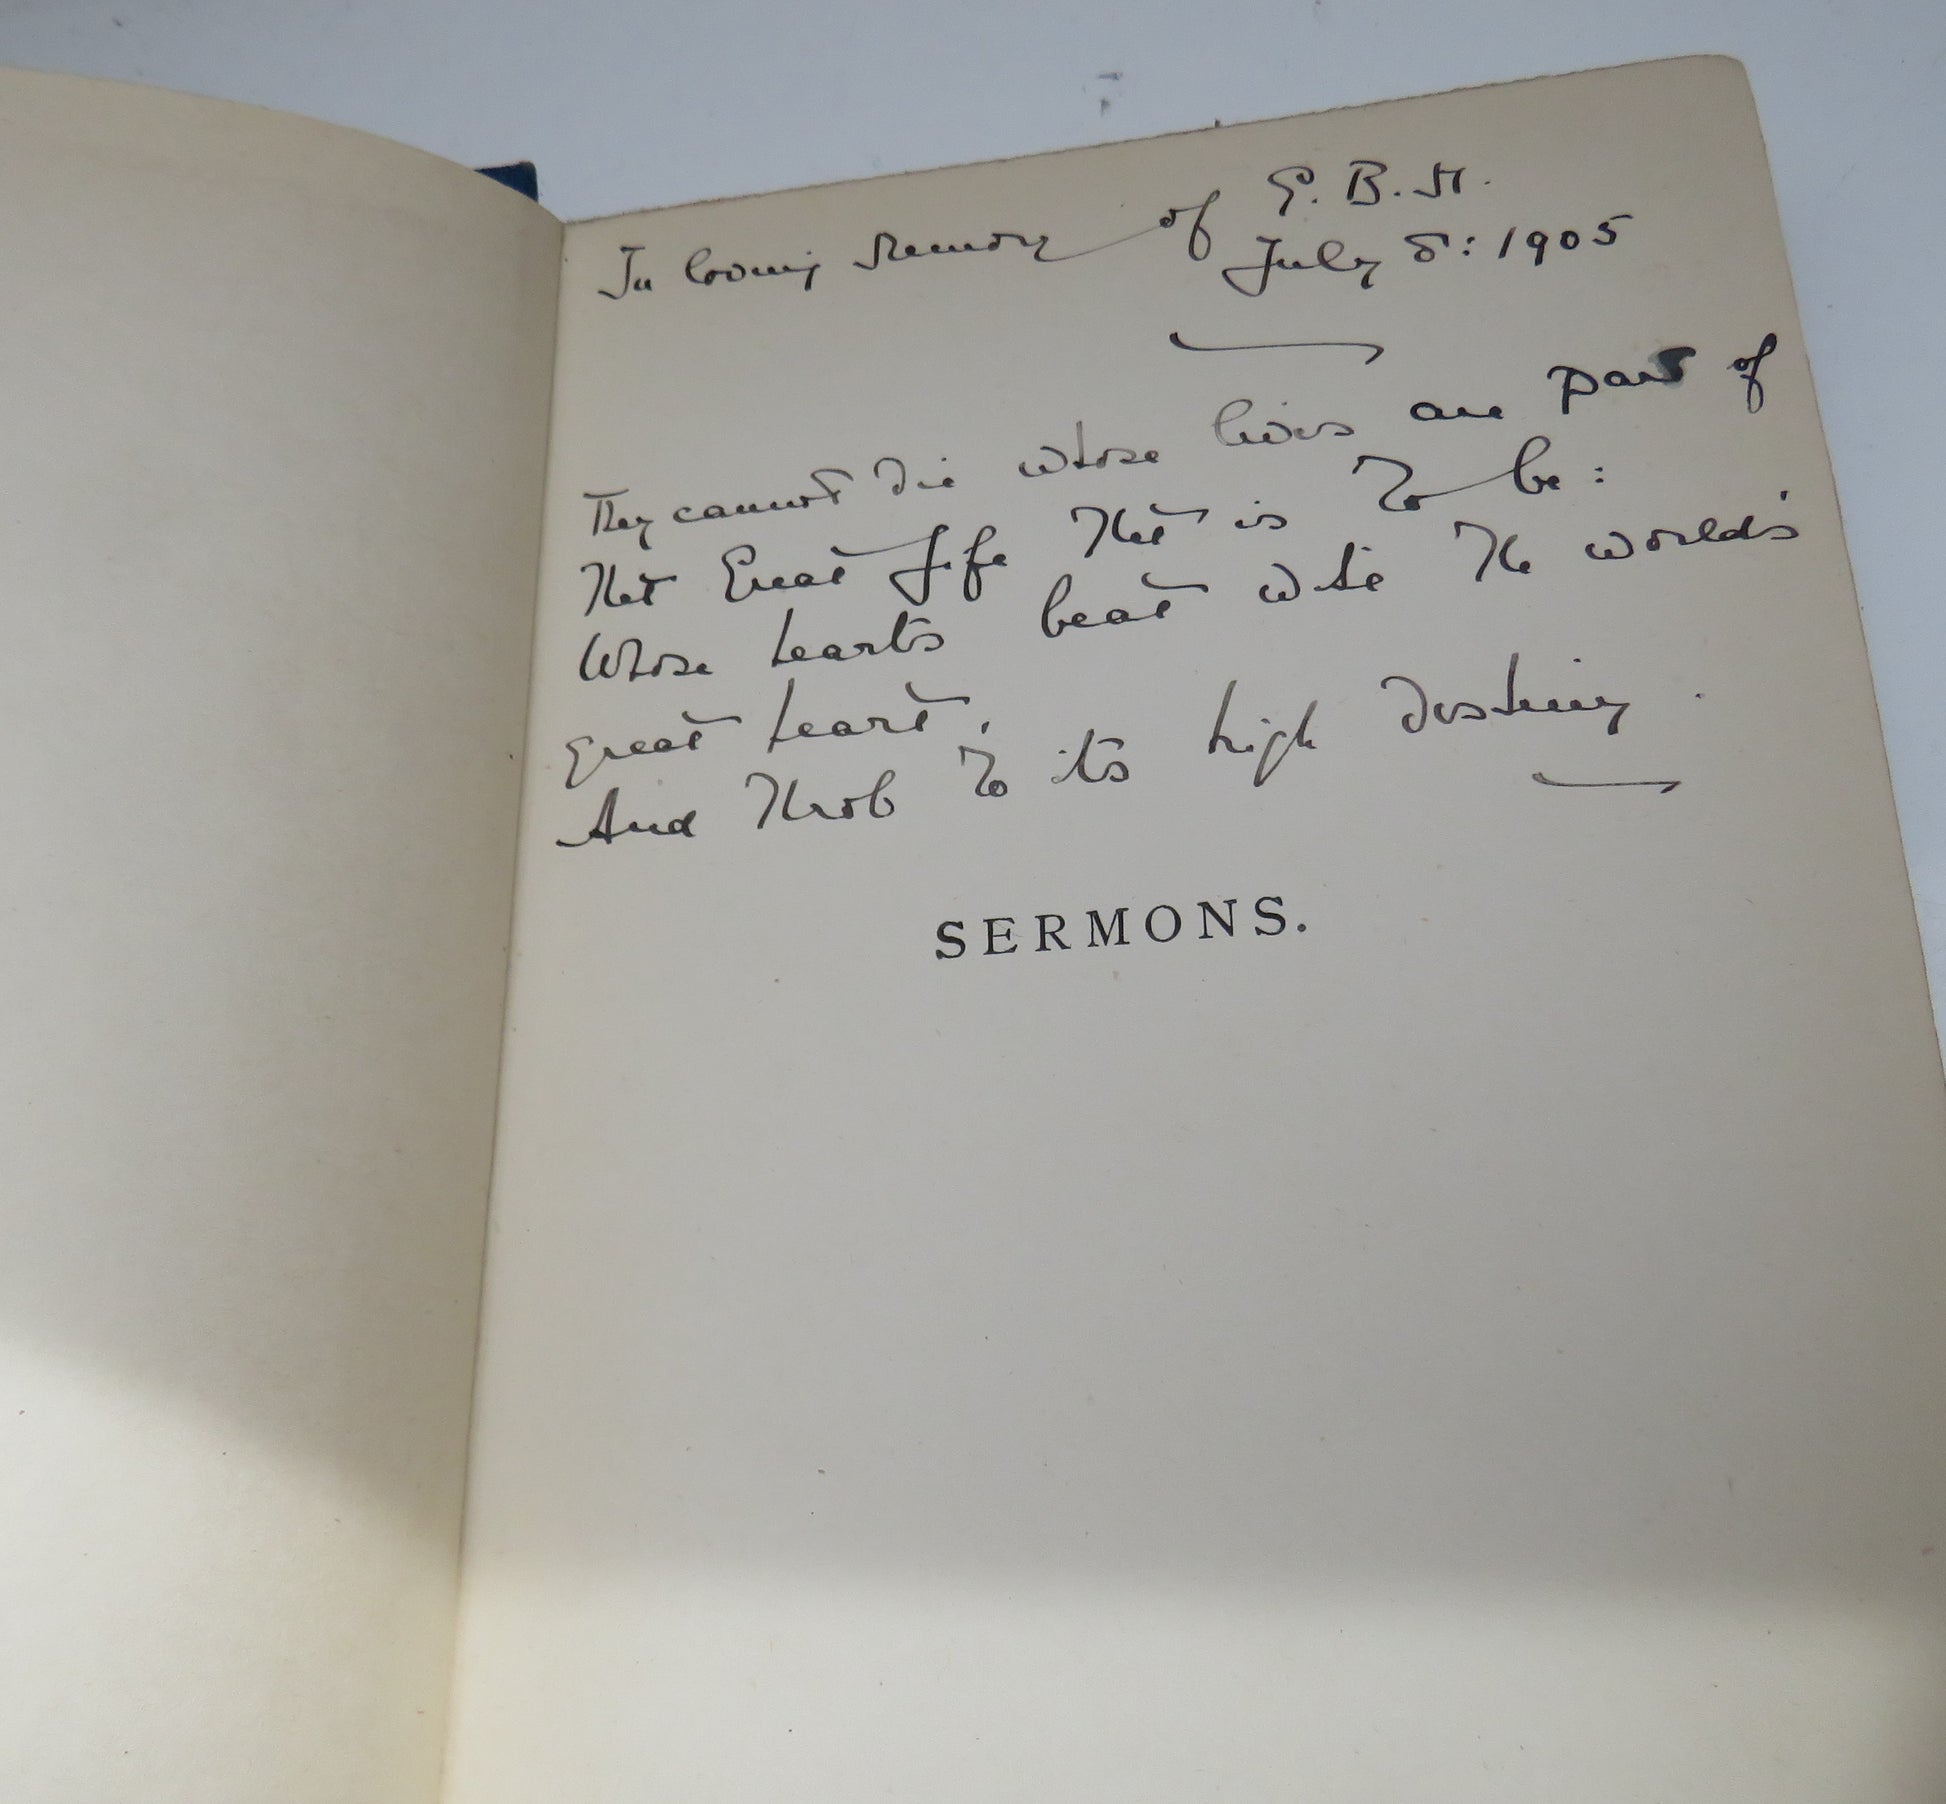 In loving Memory of G. B. H.
July 8: 1905
They cannot die whose lives are part of
That Great Life that is to be:
Whose hearts beat with the world's
great heart,
And throb to its high destiny.
SERMONS.